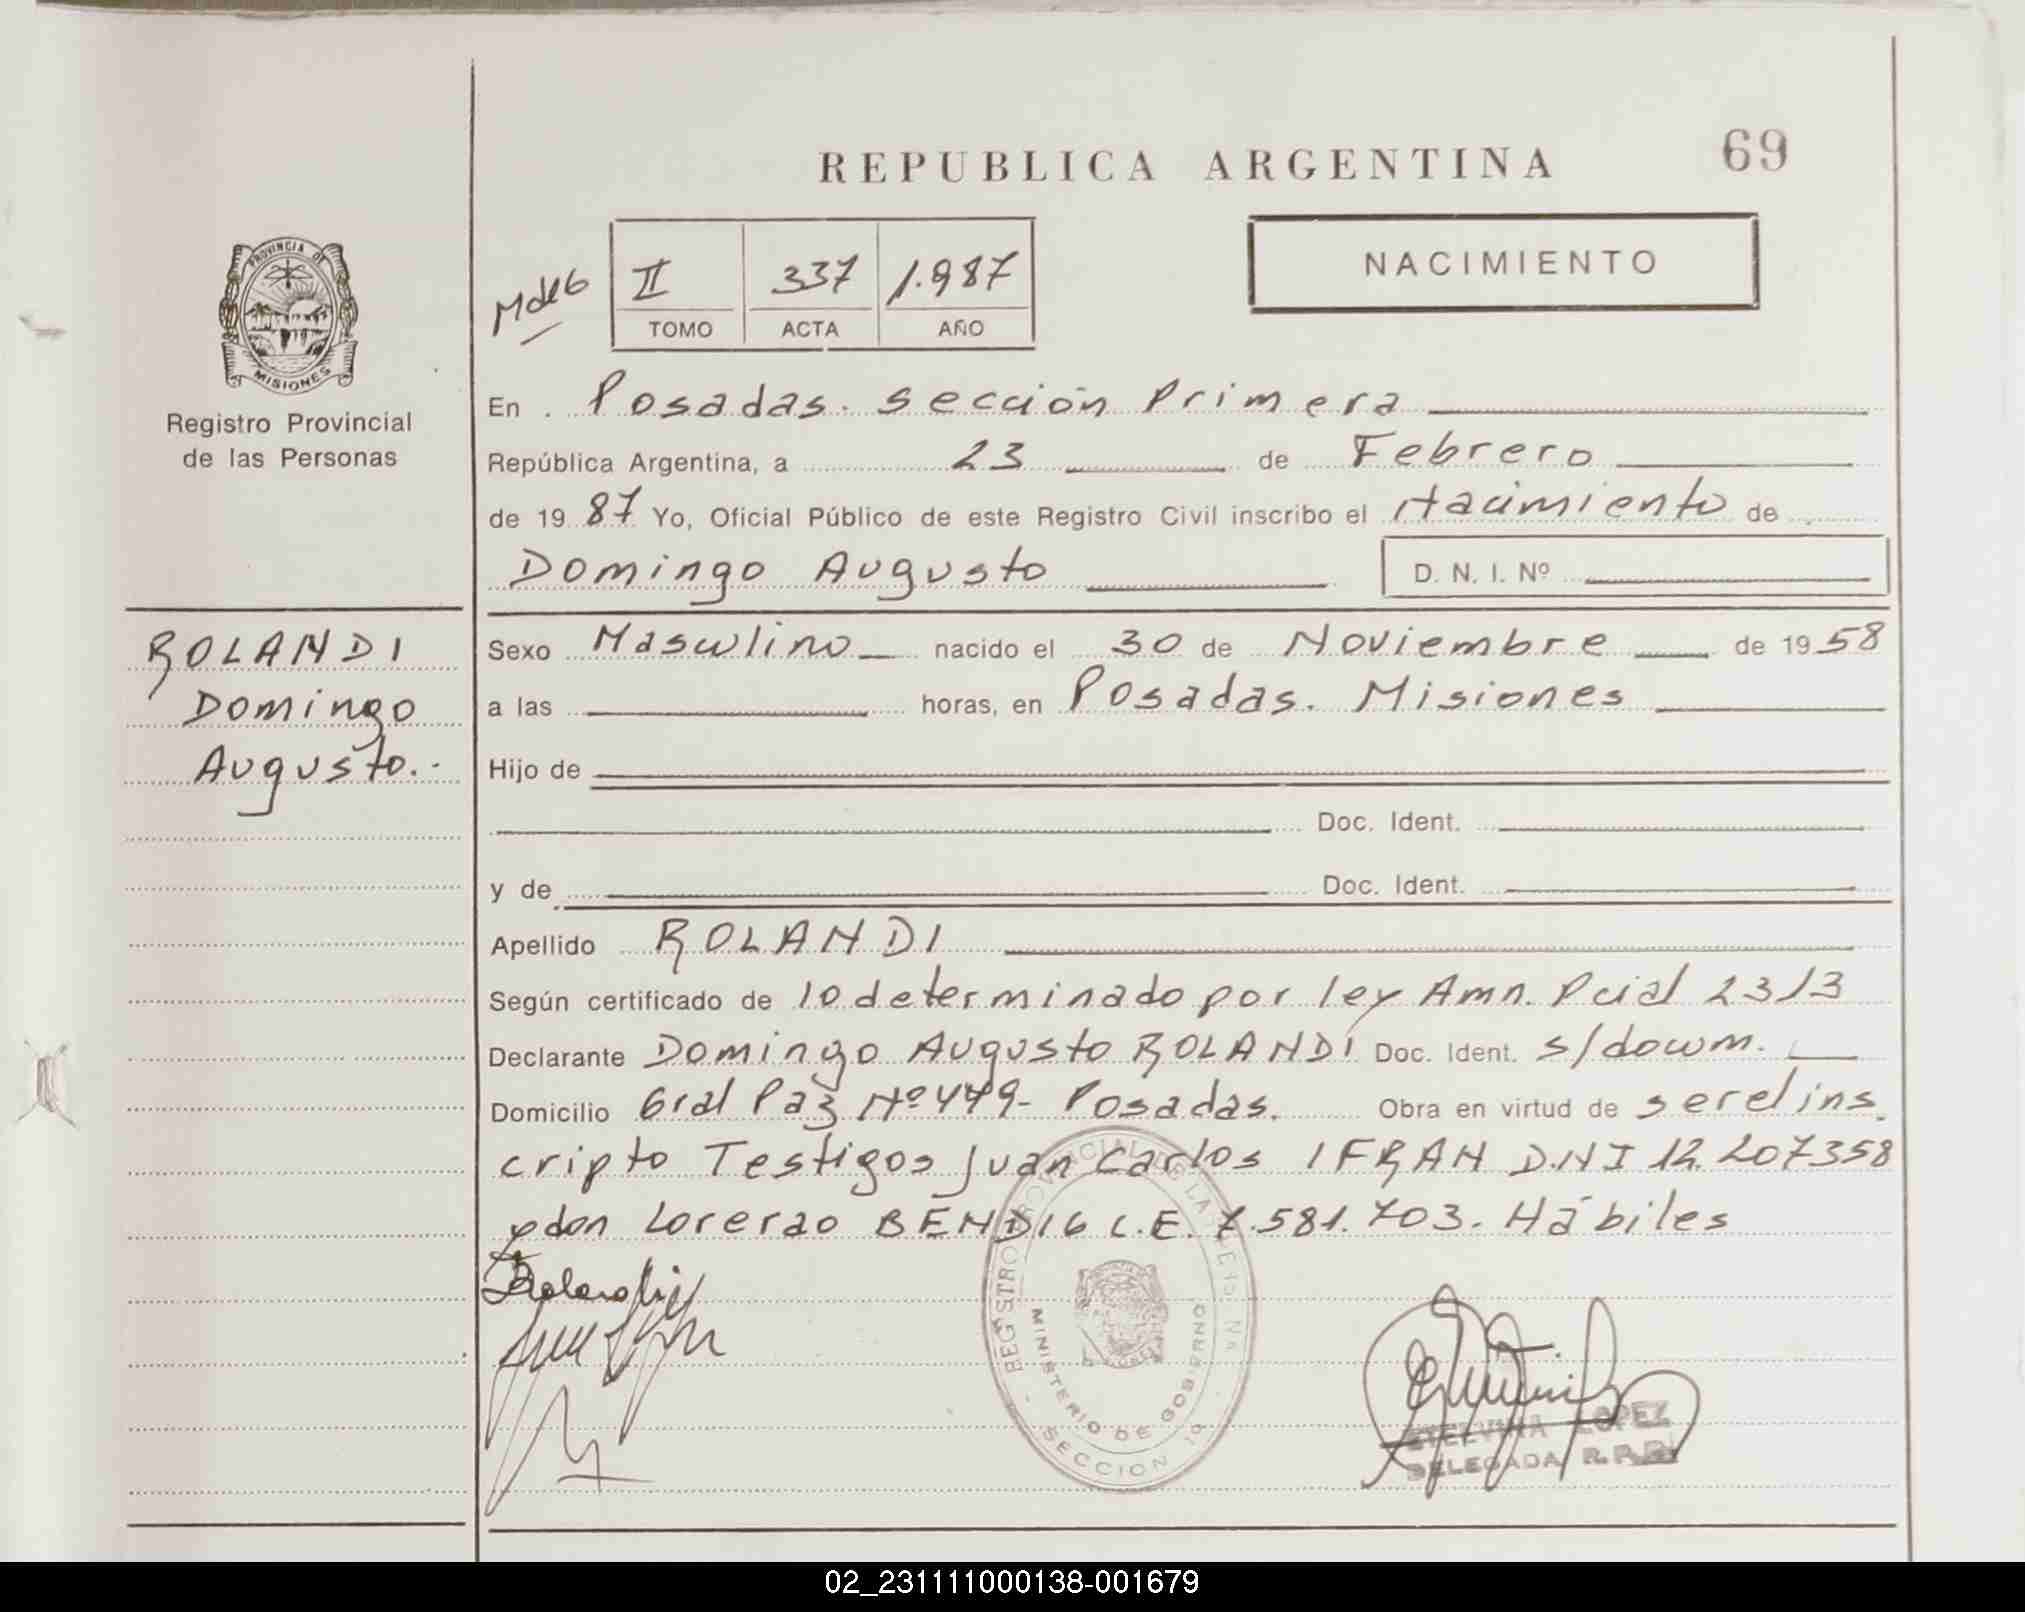 REPUBLICA ARGENTINA
69
NACIMIENTO
II 337 1.987
TOMO ACTA AÑO
PROVINCIA DE
MISIONES
Registro Provincial
de las Personas
En Posadas. sección Primera
República Argentina, a 23 de Febrero
de 1987 Yo, Oficial Público de este Registro Civil inscribo el Nacimiento de
Domingo Augusto
D. N. I. Nº
ROLANDI
Domingo
Augusto.-
Sexo Masculino nacido el 30 de Noviembre de 1958
a las horas, en Posadas. Misiones
Hijo de
Doc. Ident.
y de Doc. Ident.
Apellido ROLANDI
Según certificado de lo determinado por ley Amn. Pcial 2313
Declarante Domingo Augusto ROLANDI Doc. Ident. s/docum.
Domicilio Gral Paz Nº 479- Posadas. Obra en virtud de ser el ins
cripto Testigos Juan Carlos IFRAN D.N.I 12.207358
y don Lorenzo BENDIG L.E. 7.581.703. Hábiles
REGISTRO PROVINCIAL DE LAS
MINISTERIO DE GOBIERNO
SECCION 1º
LOPEZ
DELEGADA R.P.P.
02_231111000138-001679